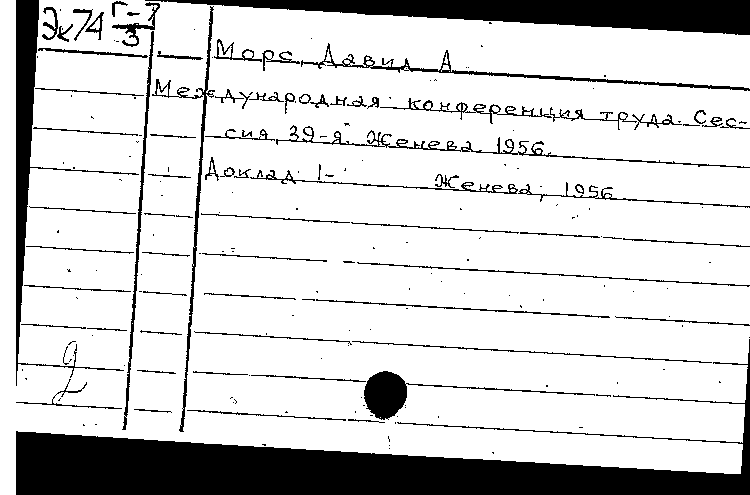 Эк74 Г-7/3
Морс, Давид А
Международная конференция труда. Сес-
сия, 39-я. Женева. 1956.
Доклад 1- Женева, 1956
2